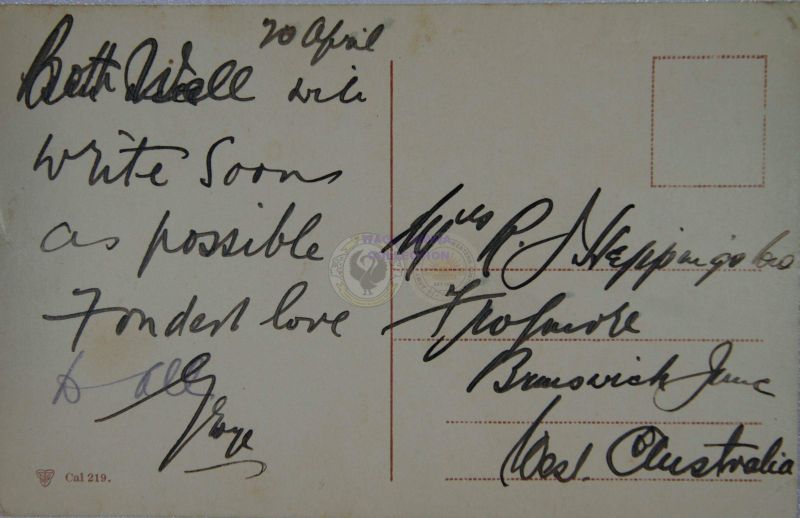 20 April
Both Well will
write Soon
as possible
Fondest love
to All
George
Mrs R. J Heppingstone
Frogmore
Brunswick Junc
West. Australia
Cal 219.